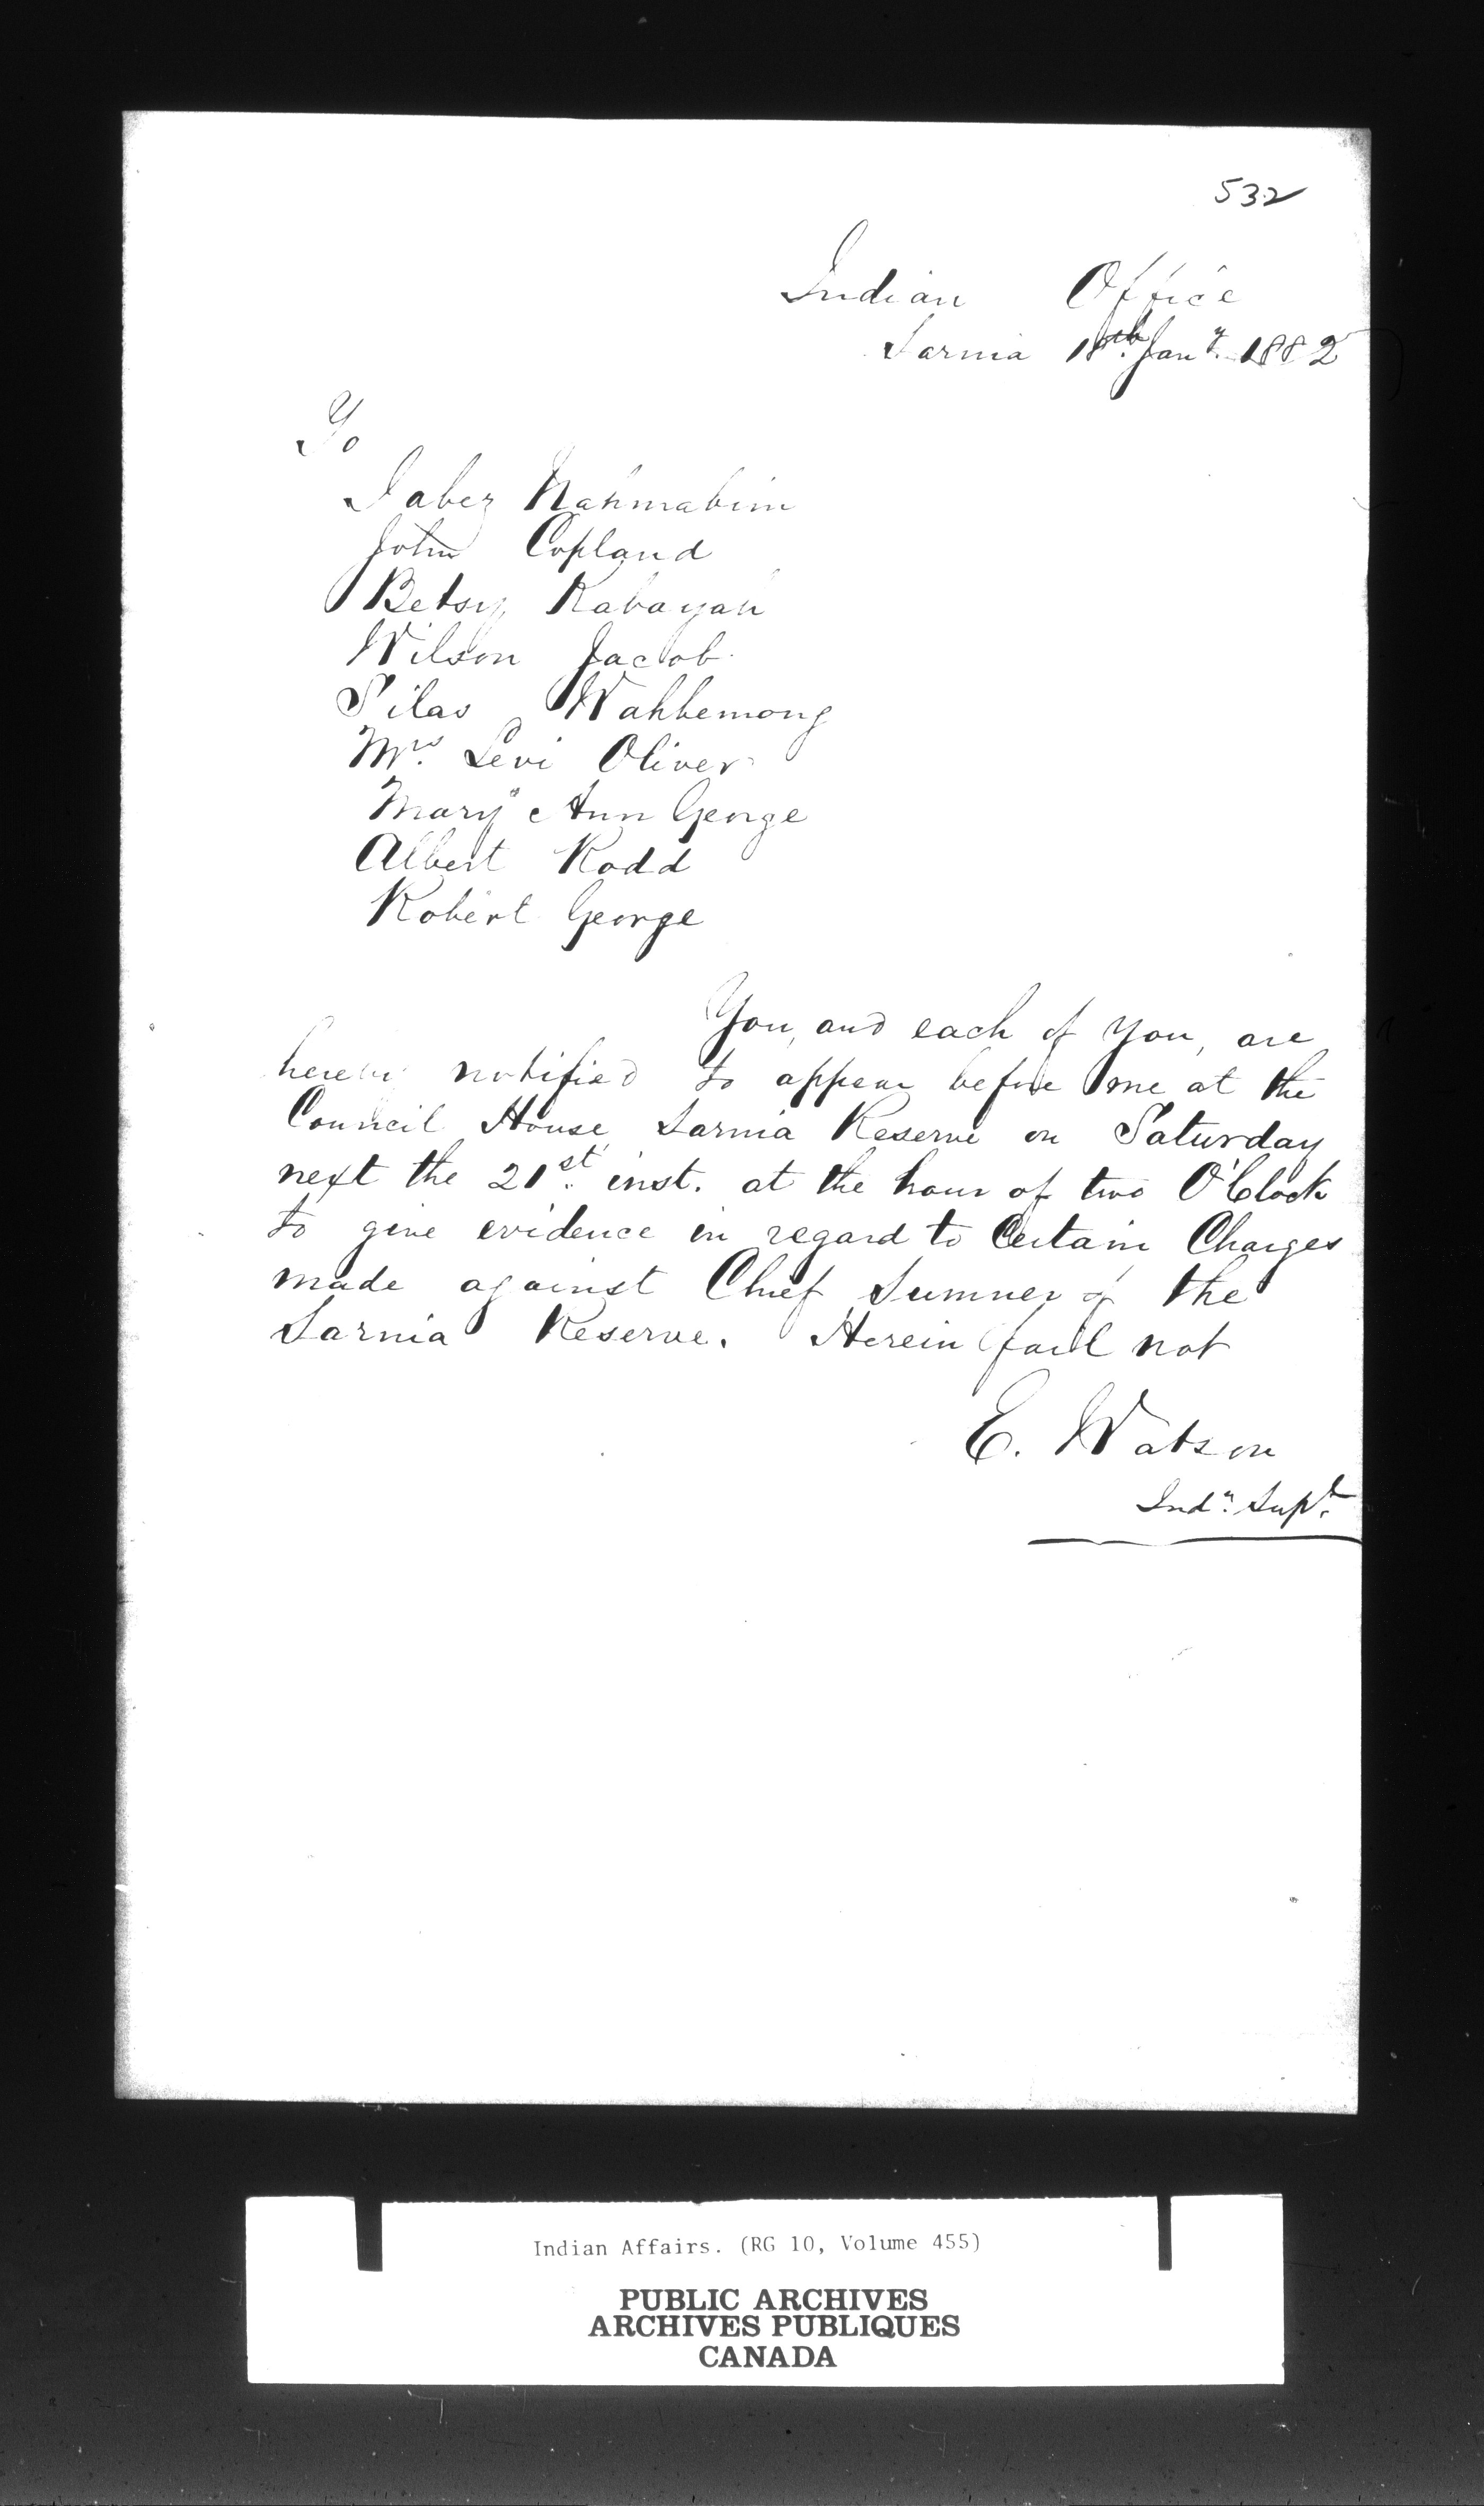 532
Indian Office
Sarnia 18th. Jany. 1882
To
Jabez Nahmabim
John Copland
Betsy Kabayah
Wilson Jacob
Silas Wahbemong
Mrs. Levi Oliver
Mary Ann George
Albert Rodd
Robert George
You, and each of you, are
hereby notified to appear before me at the
Council House Sarnia Reserve on Saturday
next the 21st. inst. at the hour of two O'Clock
to give evidence in regard to Certain Charges
made against Chief Sumner of the
Sarnia Reserve. Herein fail not
E. Watson
Indn. Supt.
Indian Affairs. (RG 10, Volume 455)
PUBLIC ARCHIVES
ARCHIVES PUBLIQUES
CANADA